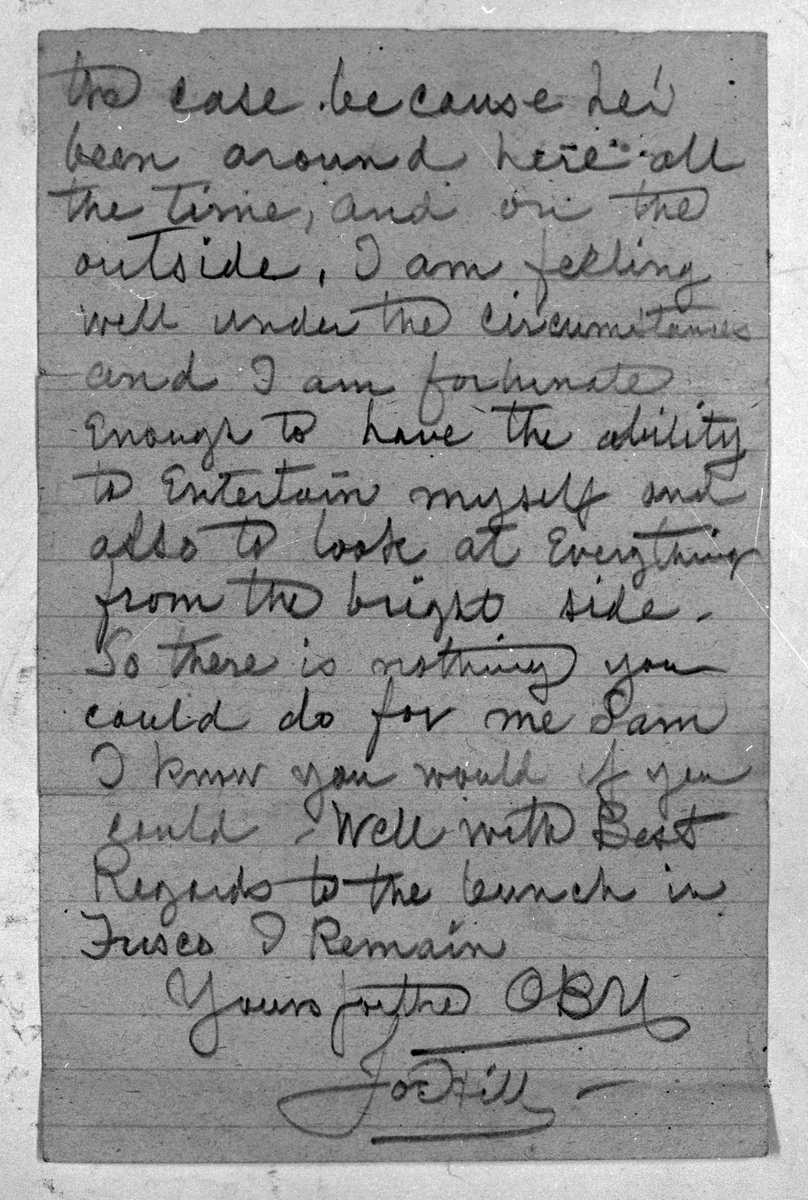 the case because he's
been around here all
the time, and on the
outside. I am feeling
well under the circumstances
and I am fortunate
Enough to have the ability
to Entertain myself and
also to look at Everything
from the bright side.
So there is nothing you
could do for me Sam
I know you would if you
could. Well with Best
Regards to the bunch in
Frisco I Remain
Yours for the OBU
Joe Hill